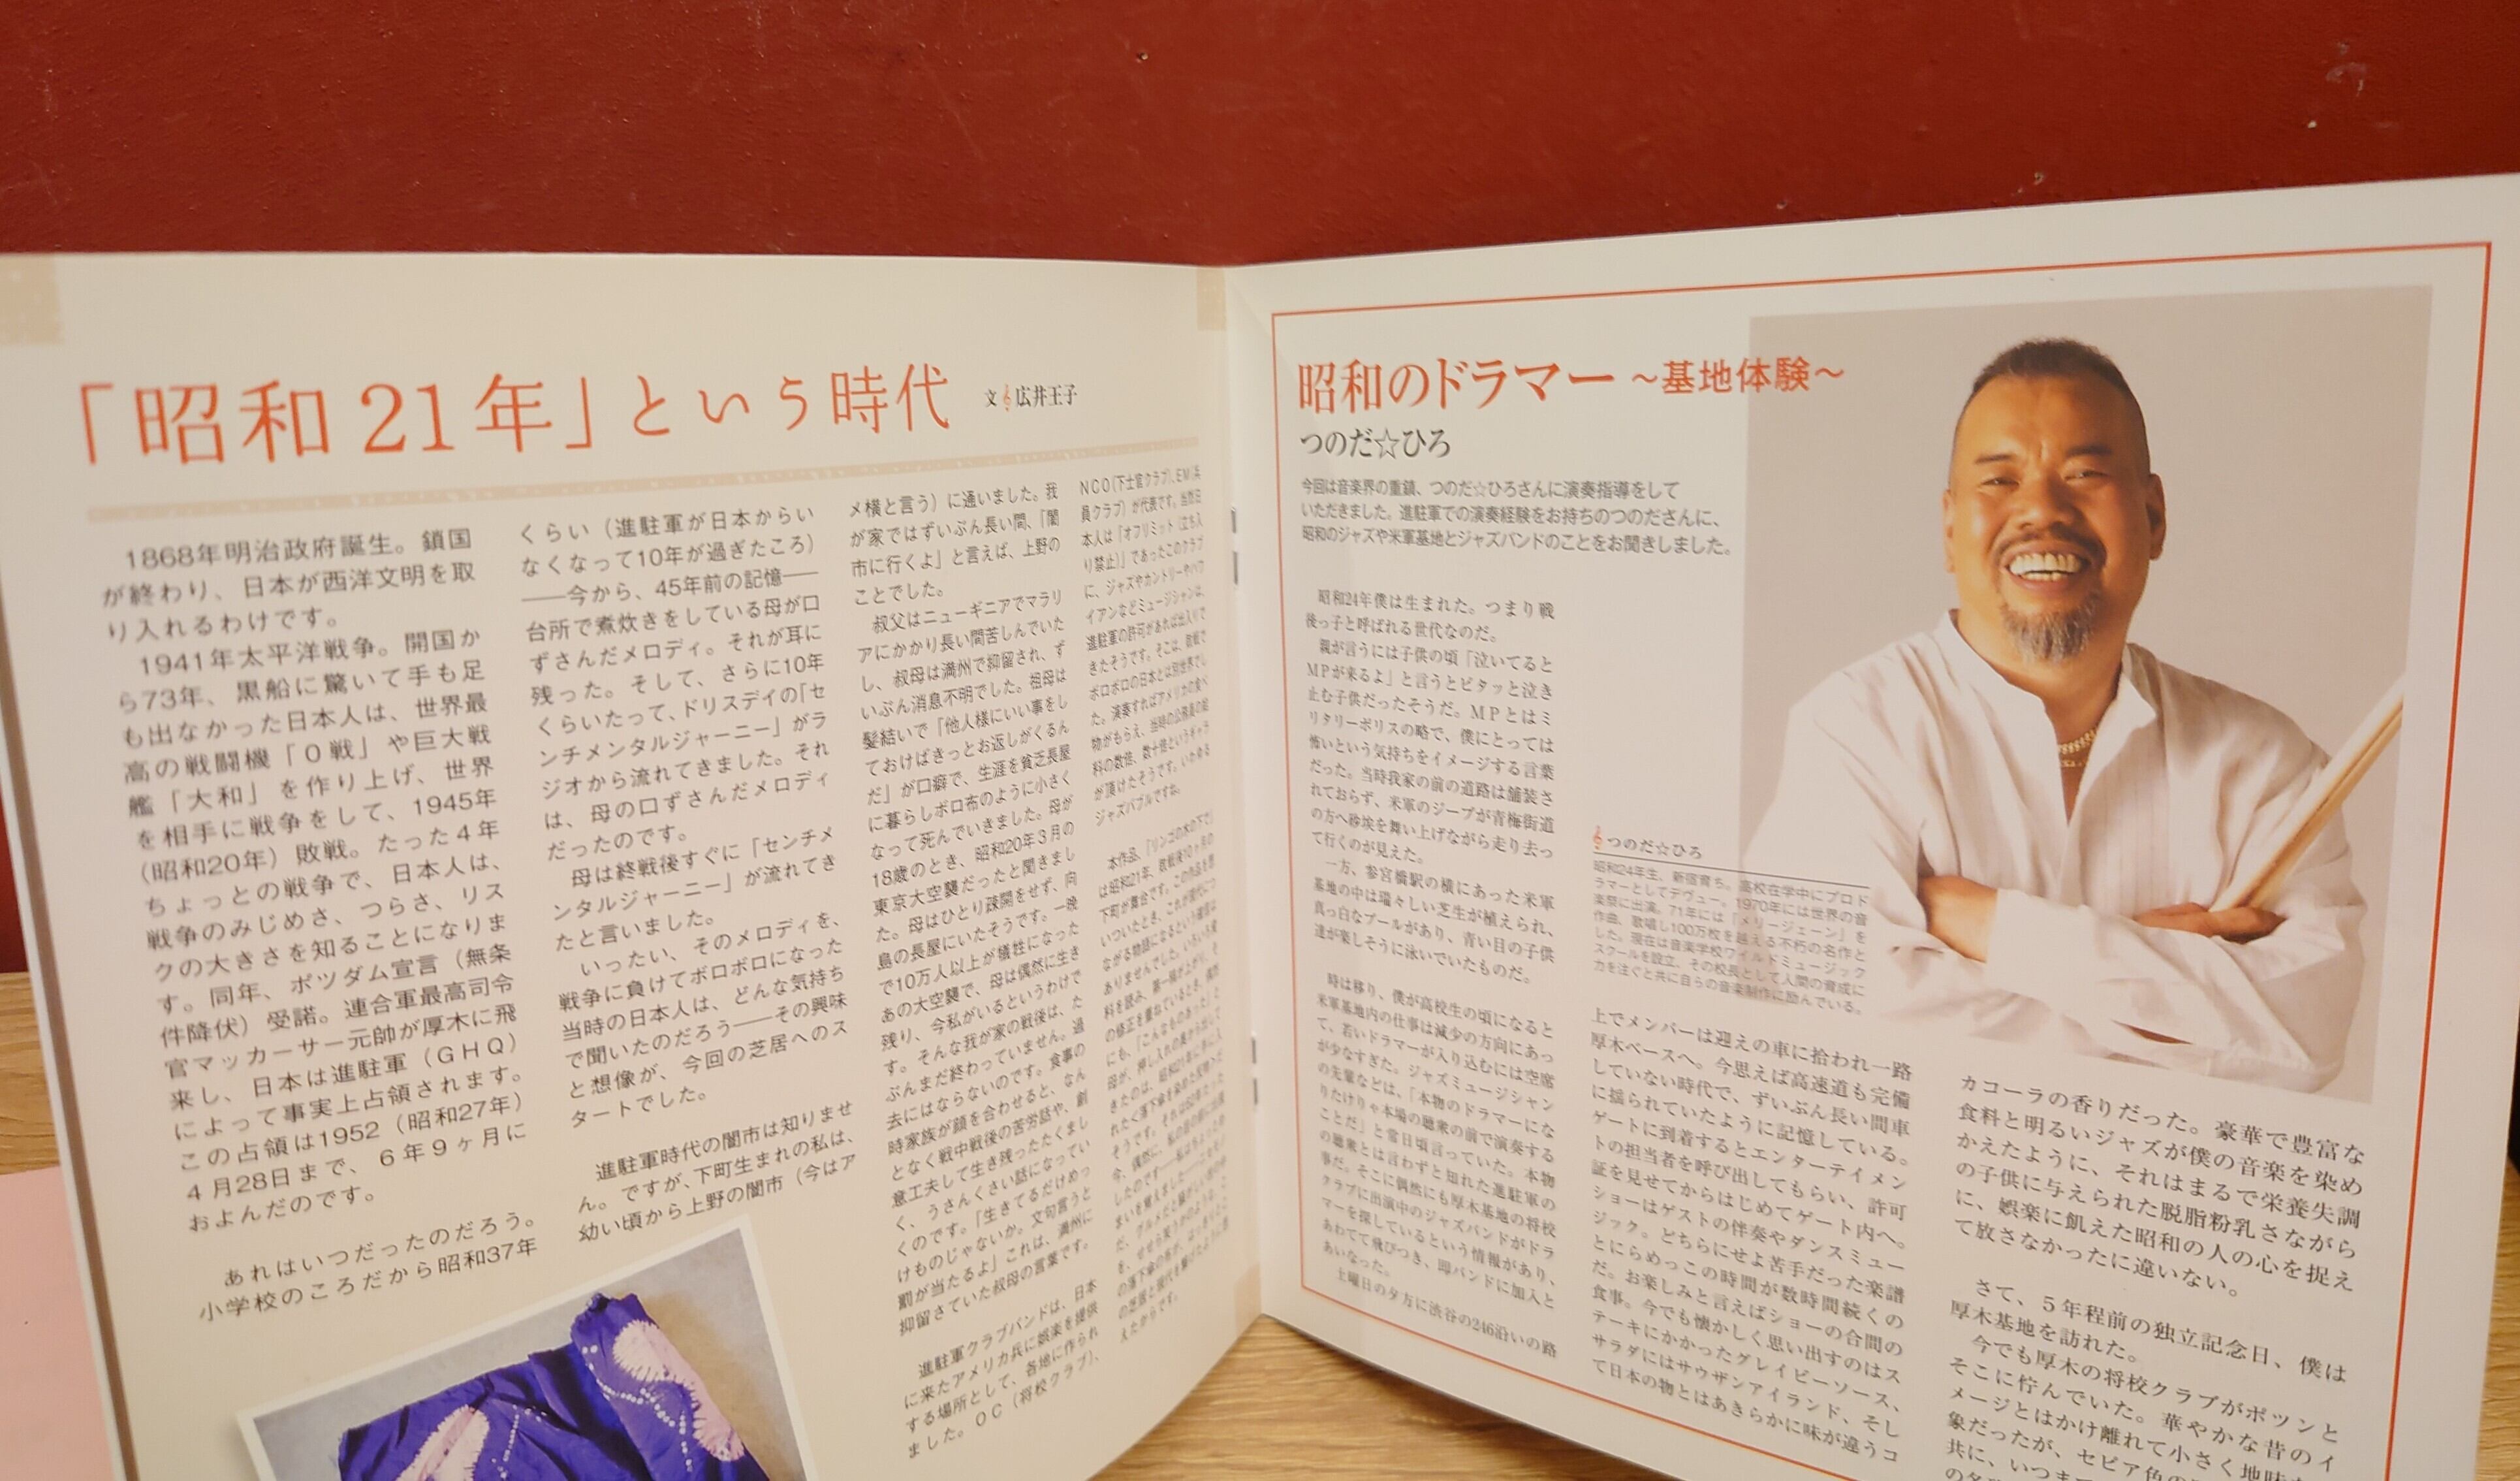 「昭和21年」という時代
文 広井王子
1868年明治政府誕生。鎖国
が終わり、日本が西洋文明を取
り入れるわけです。
1941年太平洋戦争。開国か
ら73年、黒船に驚いて手も足
も出なかった日本人は、世界最
高の戦闘機「0戦」や巨大戦
艦「大和」を作り上げ、世界
を相手に戦争をして、1945年
（昭和20年）敗戦。たった4年
ちょっとの戦争で、日本人は、
戦争のみじめさ、つらさ、リス
クの大きさを知ることになりま
す。同年、ポツダム宣言（無条
件降伏）受諾。連合軍最高司令
官マッカーサー元帥が厚木に飛
来し、日本は進駐軍（GHQ）
によって事実上占領されます。
この占領は1952（昭和27年）
4月28日まで、6年9ヶ月に
およんだのです。
あれはいつだったのだろう。
小学校のころだから昭和37年
くらい（進駐軍が日本からい
なくなって10年が過ぎたころ）
――今から、45年前の記憶――
台所で煮炊きをしている母が口
ずさんだメロディ。それが耳に
残った。そして、さらに10年
くらいたって、ドリスデイの「セ
ンチメンタルジャーニー」がラ
ジオから流れてきました。それ
は、母の口ずさんだメロディ
だったのです。
母は終戦後すぐに「センチメ
ンタルジャーニー」が流れてき
たと言いました。
いったい、そのメロディを、
戦争に負けてボロボロになった
当時の日本人は、どんな気持ち
で聞いたのだろう――その興味
と想像が、今回の芝居へのス
タートでした。
進駐軍時代の闇市は知りませ
ん。ですが、下町生まれの私は、
幼い頃から上野の闇市（今はア
メ横と言う）に通いました。我
が家ではずいぶん長い間、「闇
市に行くよ」と言えば、上野の
ことでした。
叔父はニューギニアでマラリ
アにかかり長い間苦しんでいた
し、叔母は満州で抑留され、ず
いぶん消息不明でした。祖母は
髪結いで「他人様にいい事をし
ておけばきっとお返しがくるん
だ」が口癖で、生涯を貧乏長屋
に暮らしボロ布のように小さく
なって死んでいきました。母が
18歳のとき、昭和20年3月の
東京大空襲だったと聞きまし
た。母はひとり疎開をせず、向
島の長屋にいたそうです。一晩
で10万人以上が犠牲になった
あの大空襲で、母は偶然に生き
残り、今私がいるというわけで
す。そんな我が家の戦後は、た
ぶんまだ終わっていません。過
去にはならないのです。食事の
時家族が顔を合わせると、なん
となく戦中戦後の苦労話や、創
意工夫して生き残ったたくまし
く、うさんくさい話になってい
くのです。「生きてるだけめっ
けものじゃないか。文句言うと
罰が当たるよ」これは、満州に
抑留さていた叔母の言葉です。
進駐軍クラブバンドは、日本
に来たアメリカ兵に娯楽を提供
する場所として、各地に作られ
ました。OC（将校クラブ）、
NCO（下士官クラブ）、EM（兵
員クラブ）が代表です。当然日
本人は「オフリミット（立ち入
り禁止）」であったこのクラブ
に、ジャズやカントリーやハワ
イアンなどミュージシャンは、
進駐軍の許可があれば出入りで
きたそうです。そこは、敗戦で
ボロボロの日本とは別世界でし
た。演奏すればアメリカの食べ
物がもらえ、当時の公務員の給
料の数倍、数十倍というギャラ
が頂けたそうです。いわゆる
ジャズバブルですね。
本作品、「リンゴの木の下で」
昭和のドラマー ～基地体験～
つのだ☆ひろ
今回は音楽界の重鎮、つのだ☆ひろさんに演奏指導をして
いただきました。進駐軍での演奏経験をお持ちのつのださんに、
昭和のジャズや米軍基地とジャズバンドのことをお聞きしました。
昭和24年僕は生まれた。つまり戦
後っ子と呼ばれる世代なのだ。
親が言うには子供の頃「泣いてると
MPが来るよ」と言うとピタッと泣き
止む子供だったそうだ。MPとはミ
リタリーポリスの略で、僕にとっては
怖いという気持ちをイメージする言葉
だった。当時我家の前の道路は舗装さ
れておらず、米軍のジープが青梅街道
の方へ砂埃を舞い上げながら走り去っ
て行くのが見えた。
一方、参宮橋駅の横にあった米軍
基地の中は瑞々しい芝生が植えられ、
真っ白なプールがあり、青い目の子供
達が楽しそうに泳いでいたものだ。
時は移り、僕が高校生の頃になると
米軍基地内の仕事は減少の方向にあっ
て、若いドラマーが入り込むには空席
が少なすぎた。ジャズミュージシャン
の先輩などは、「本物のドラマーにな
りたけりゃ本場の聴衆の前で演奏する
ことだ」と常日頃言っていた。本物
の聴衆とは言わずと知れた進駐軍の
事だ。そこに偶然にも厚木基地の将校
クラブに出演中のジャズバンドがドラ
マーを探しているという情報があり、
あわてて飛びつき、即バンドに加入と
あいなった。
土曜日の夕方に渋谷の246沿いの路
つのだ☆ひろ
昭和24年生、新宿育ち。高校在学中にプロド
ラマーとしてデヴュー。1970年には世界の音
楽祭に出演。71年には「メリージェーン」を
作曲、歌唱し100万枚を越える不朽の名作と
した。現在は音楽学校ワイルドミュージック
スクールを設立、その校長として人間の育成に
力を注ぐと共に自らの音楽制作に励んでいる。
上でメンバーは迎えの車に拾われ一路
厚木ベースへ。今思えば高速道も完備
していない時代で、ずいぶん長い間車
に揺られていたように記憶している。
ゲートに到着するとエンターテイメン
トの担当者を呼び出してもらい、許可
証を見せてからはじめてゲート内へ。
ショーはゲストの伴奏やダンスミュー
ジック。どちらにせよ苦手だった楽譜
とにらめっこの時間が数時間続くの
だ。お楽しみと言えばショーの合間の
食事。今でも懐かしく思い出すのはス
テーキにかかったグレイビーソース、
サラダにはサウザンアイランド、そし
て日本の物とはあきらかに味が違うコ
カコーラの香りだった。豪華で豊富な
食料と明るいジャズが僕の音楽を染め
かえたように、それはまるで栄養失調
の子供に与えられた脱脂粉乳さながら
に、娯楽に飢えた昭和の人の心を捉え
て放さなかったに違いない。
さて、5年程前の独立記念日、僕は
厚木基地を訪れた。
今でも厚木の将校クラブがポツンと
そこに佇んでいた。華やかな昔のイ
メージとはかけ離れて小さく地味
象だったが、セピア色の
共に、いつま